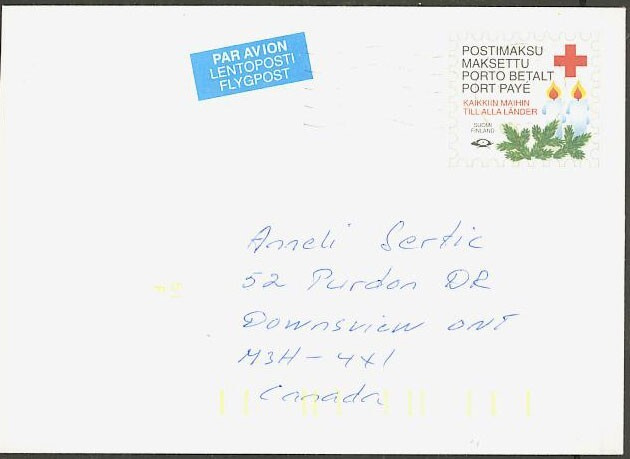 PAR AVION
LENTOPOSTI
FLYGPOST
POSTIMAKSU
MAKSETTU
PORTO BETALT
PORT PAYÉ
KAIKKIIN MAIHIN
TILL ALLA LÄNDER
SUOMI
FINLAND
Anneli Sertic
52 Purdon DR
Downsview ONT
M3H-4X1
Canada